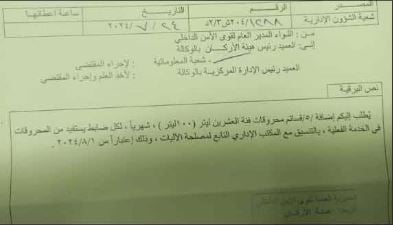 المصدر الرقم التاريخ ساعة اعطائها
شعبة الشؤون الإدارية ٢٠٤/١٢٨٨ش٣/٢ ٢٤ / ٧ /٢٠٢٤
مـن : اللواء المدير العام لقوى الأمن الداخلي
إلـى: العميد رئيس هيئة الأركـان بالوكالة
- شعبة المعلوماتية : لإجراء المقتضى
العميد رئيس الإدارة المركزية بالوكالة : لأخذ العلم وإجراء المقتضى
نص البرقية
يُطلب إليكم إضافة /٥/قسائم محروقات فئة العشرين ليتر (١٠٠ليتر ) ، شهرياً ، لكل ضابط يستفيد من المحروقات
في الخدمة الفعلية ، بالتنسيق مع المكتب الإداري التابع لمصلحة الآليات ، وذلك إعتباراً من ٢٠٢٤/٨/١ .